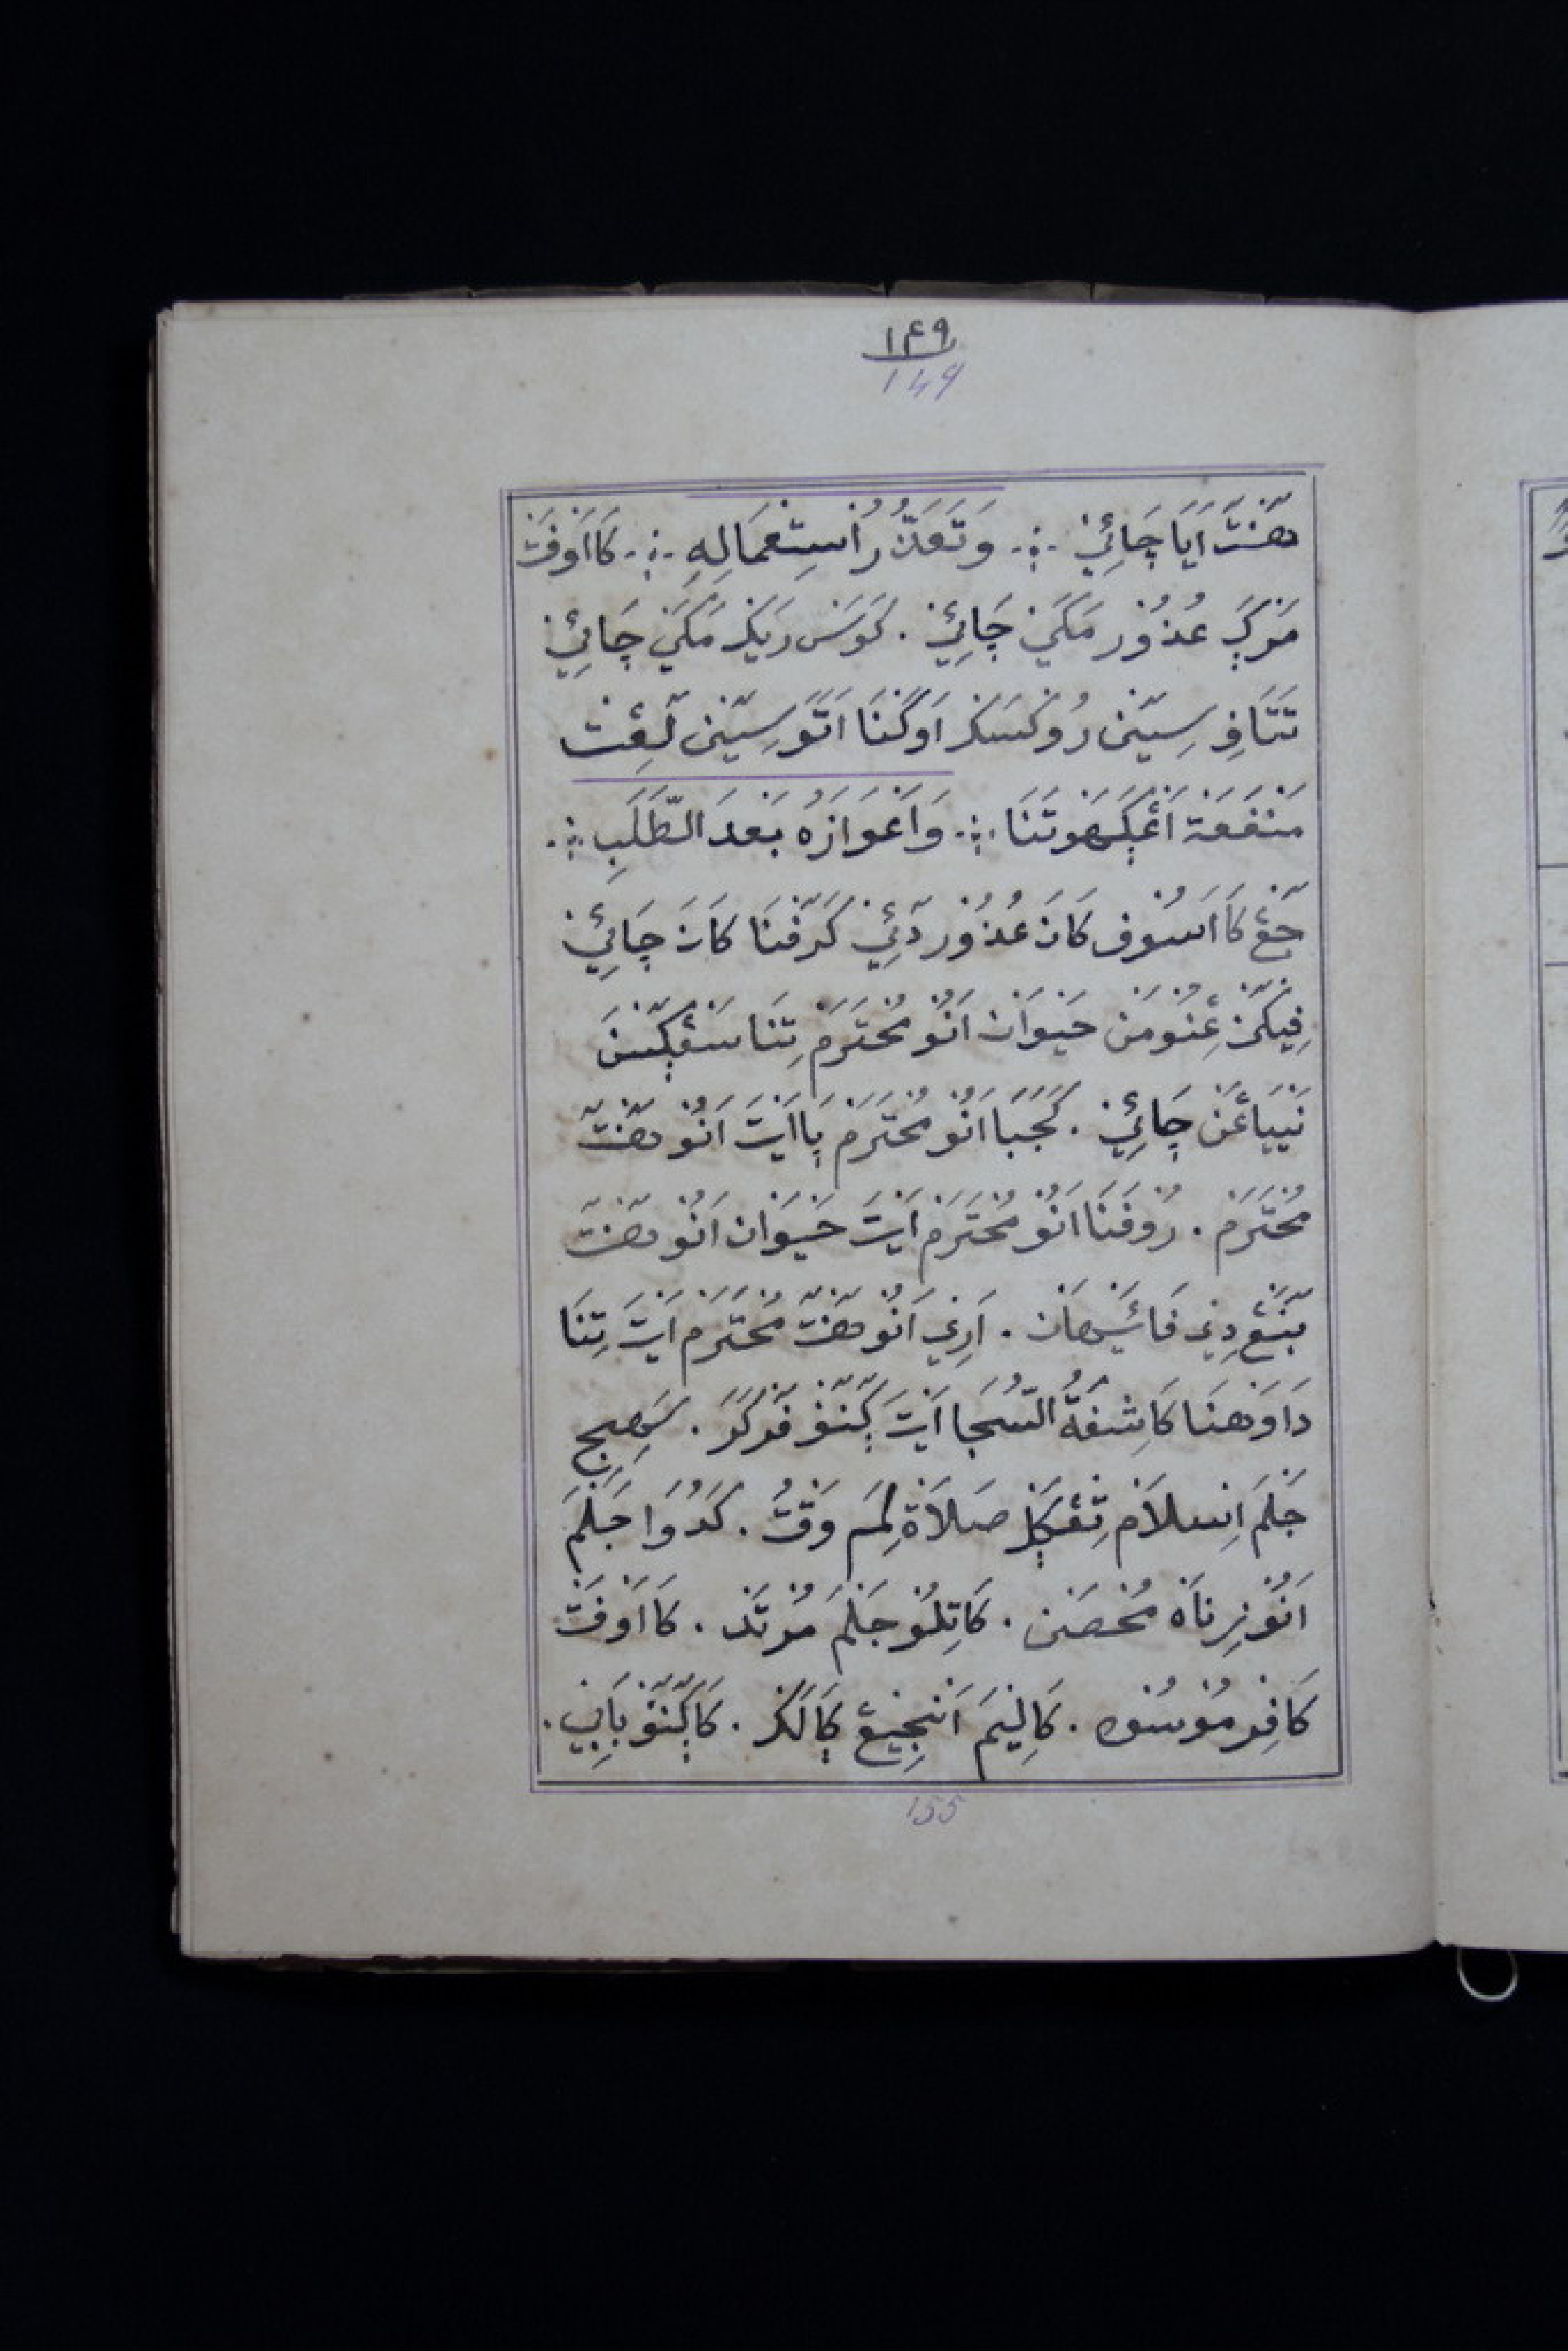 ١٤٩
149
هَنْتَ اَيَا چَائِيْ ؞ وَتَعَذُّرُ اسْتِعْمَالِهِ ؞ كَااَوْفَتْ
مَرْكَ عُذُوْر مَكَيْ چَائِيْ . كَوَسَ رَيَكْ مَكَيْ چَائِيْ
تَتَافِ سِيَنْ رُوْكَسَكْ اَوْكَنَا اَتَوَ سِيَنْ لَڠِتْ
مَنْفَعَةْ اَڠْكَهَوْتَنَا ؞ وَاَعْوَازُهُ بَعْدَ الطَّلَبِ ؞
حَڠْ كَا اَسُوْفْ كَانَ عُذُوْر دَئِيْ كَرَفْنَا كَانَ چَائِيْ
فِيَكَنْ عِنُوْمَنْ حَيْوَانْ اَنُوْ مُحْتَرَمْ تِنَا سَڠْكَنَسْ
نَيْيَاغَنْ چَائِيْ . كَجَبَا اَنُوْ مُحْتَرَمْ بَااَيْتَ اَنُوْ هَنْتَ
مُحْتَرَمْ . رُوْفَنَا اَنُوْ مُحْتَرَمْ اَيْتَ حَيْوَانْ اَنُوْ هَنْتَ
بَنَڠْ دِيْ فَائَيْهَانْ . اَرِيْ اَنُوْ هَنْتَ مُحْتَرَمْ اَيْتَ تِنَا
دَاوَهَنَا كَاشِفَةُ السَّجَا اَيْتَ كَنَڠْ فَرْكَرَ . سَهِجِ
جَلْمَ اِسْلَامْ تِڠْكَلْ صَلَاةْ لِمَ وَقْتُ . كَدُوَا جَلْمَ
اَنُوْ زِنَاهْ مُحْصَنْ . كَاتِلُوْ جَلْمَ مُرْتَدْ . كَااَوْفَتْ
كَافِرْ مُوْسُوْه . كَالِيْمَ اَنْجِيْڠْ كَالَكْ . كَاكَنَڠْ بَابِيْ .
155